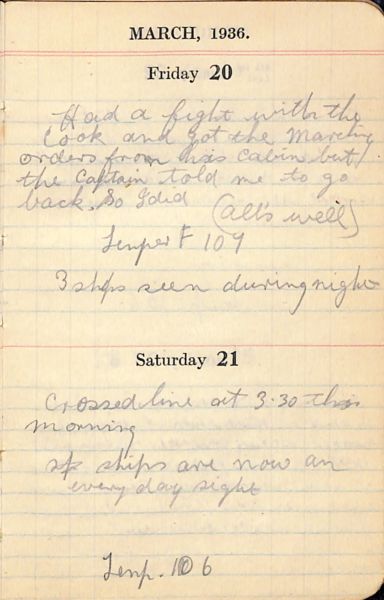 MARCH, 1936.
Friday 20
Had a fight with the
Cook and got the Marching
orders from his Cabin but
the Captain told me to go
back. So I did
(All's well)
Temper F 109
3 ships seen during night
Saturday 21
Crossed line at 3.30 this
morning
ships are now an
every day sight
Temp. 106